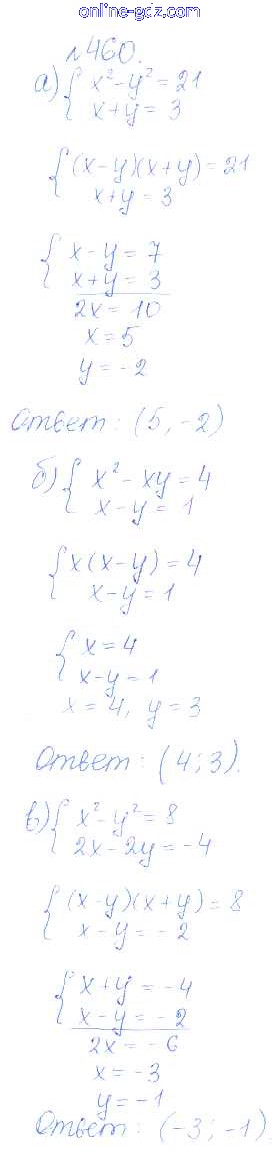 online-gdz.com
№460.
а) { x² - y² = 21
x + y = 3
{ (x - y)(x + y) = 21
x + y = 3
{ x - y = 7
x + y = 3
2x = 10
x = 5
y = -2
Ответ: (5, -2)
б) { x² - xy = 4
x - y = 1
{ x(x - y) = 4
x - y = 1
{ x = 4
x - y = 1
x = 4, y = 3
Ответ: (4; 3).
в) { x² - y² = 8
2x - 2y = -4
{ (x - y)(x + y) = 8
x - y = -2
{ x + y = -4
x - y = -2
2x = -6
x = -3
y = -1
Ответ: (-3; -1).